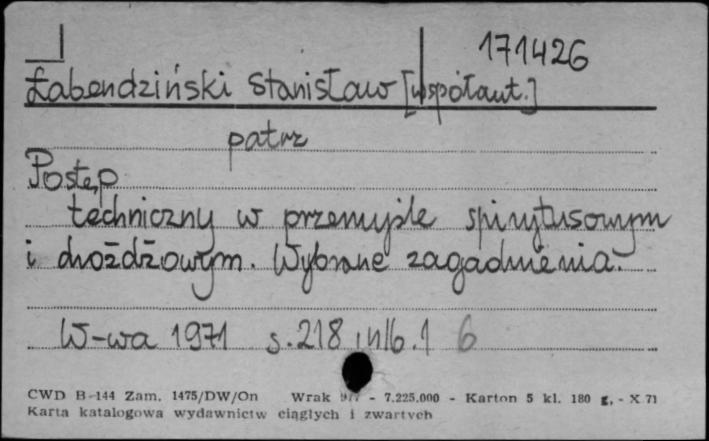 171426
Łabendziński Stanisław [współaut.]
patrz
Postęp
techniczny w przemyśle spirytusowym
i drożdżowym. Wybrane zagadnienia.
W-wa 1971 s. 218, nlb. 1 6
CWD B-144 Zam. 1475/DW/On Wrak - 7.225.000 - Karton 5 kl. 180 g, - X 71
Karta katalogowa wydawnictw ciągłych i zwartych